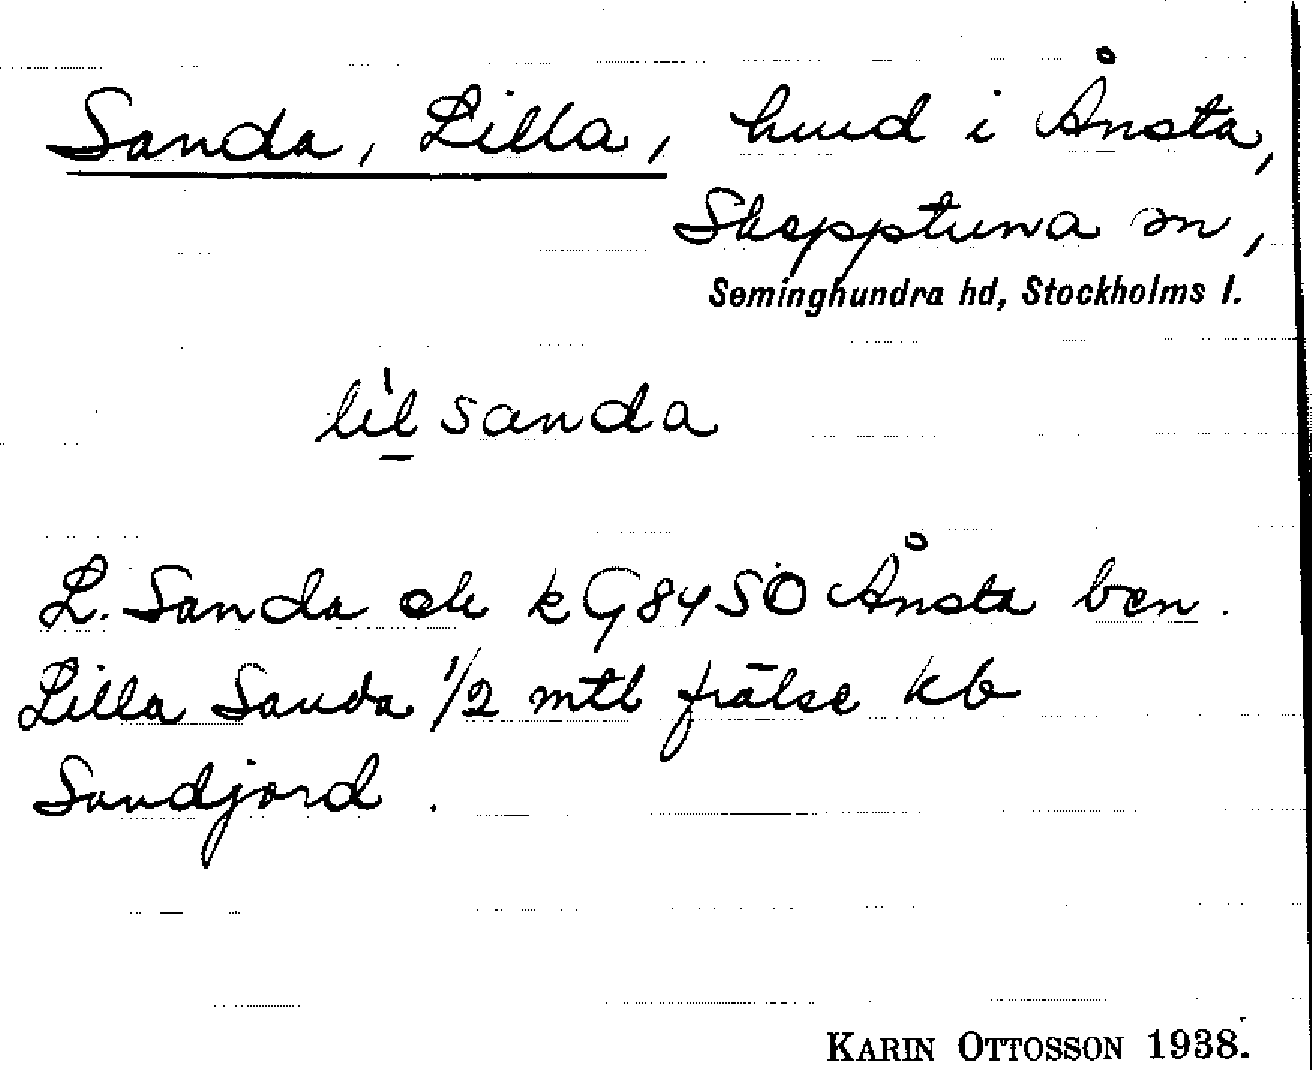 Sanda, Lilla, hmd i Ånsta,
Skepptuna sn,
Seminghundra hd, Stockholms l.
lil sanda
L. Sanda ek k G 84 SO Ånsta ben.
Lilla Sanda 1/2 mtl frälse kb
Sandjord.
KARIN OTTOSSON 1938.